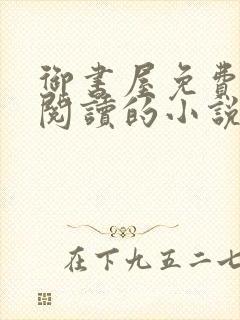 御書屋免費
閱讀的小說
在下九五二七